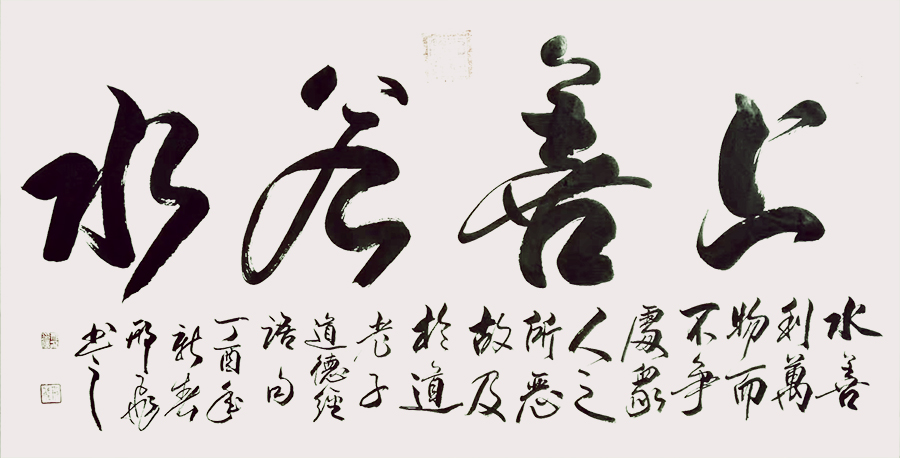 上善若水
水善
利萬
物而
不争
處眾
人之
所惡
故及
於道
老子
道德經
語句
丁酉年
新春
邢
书之